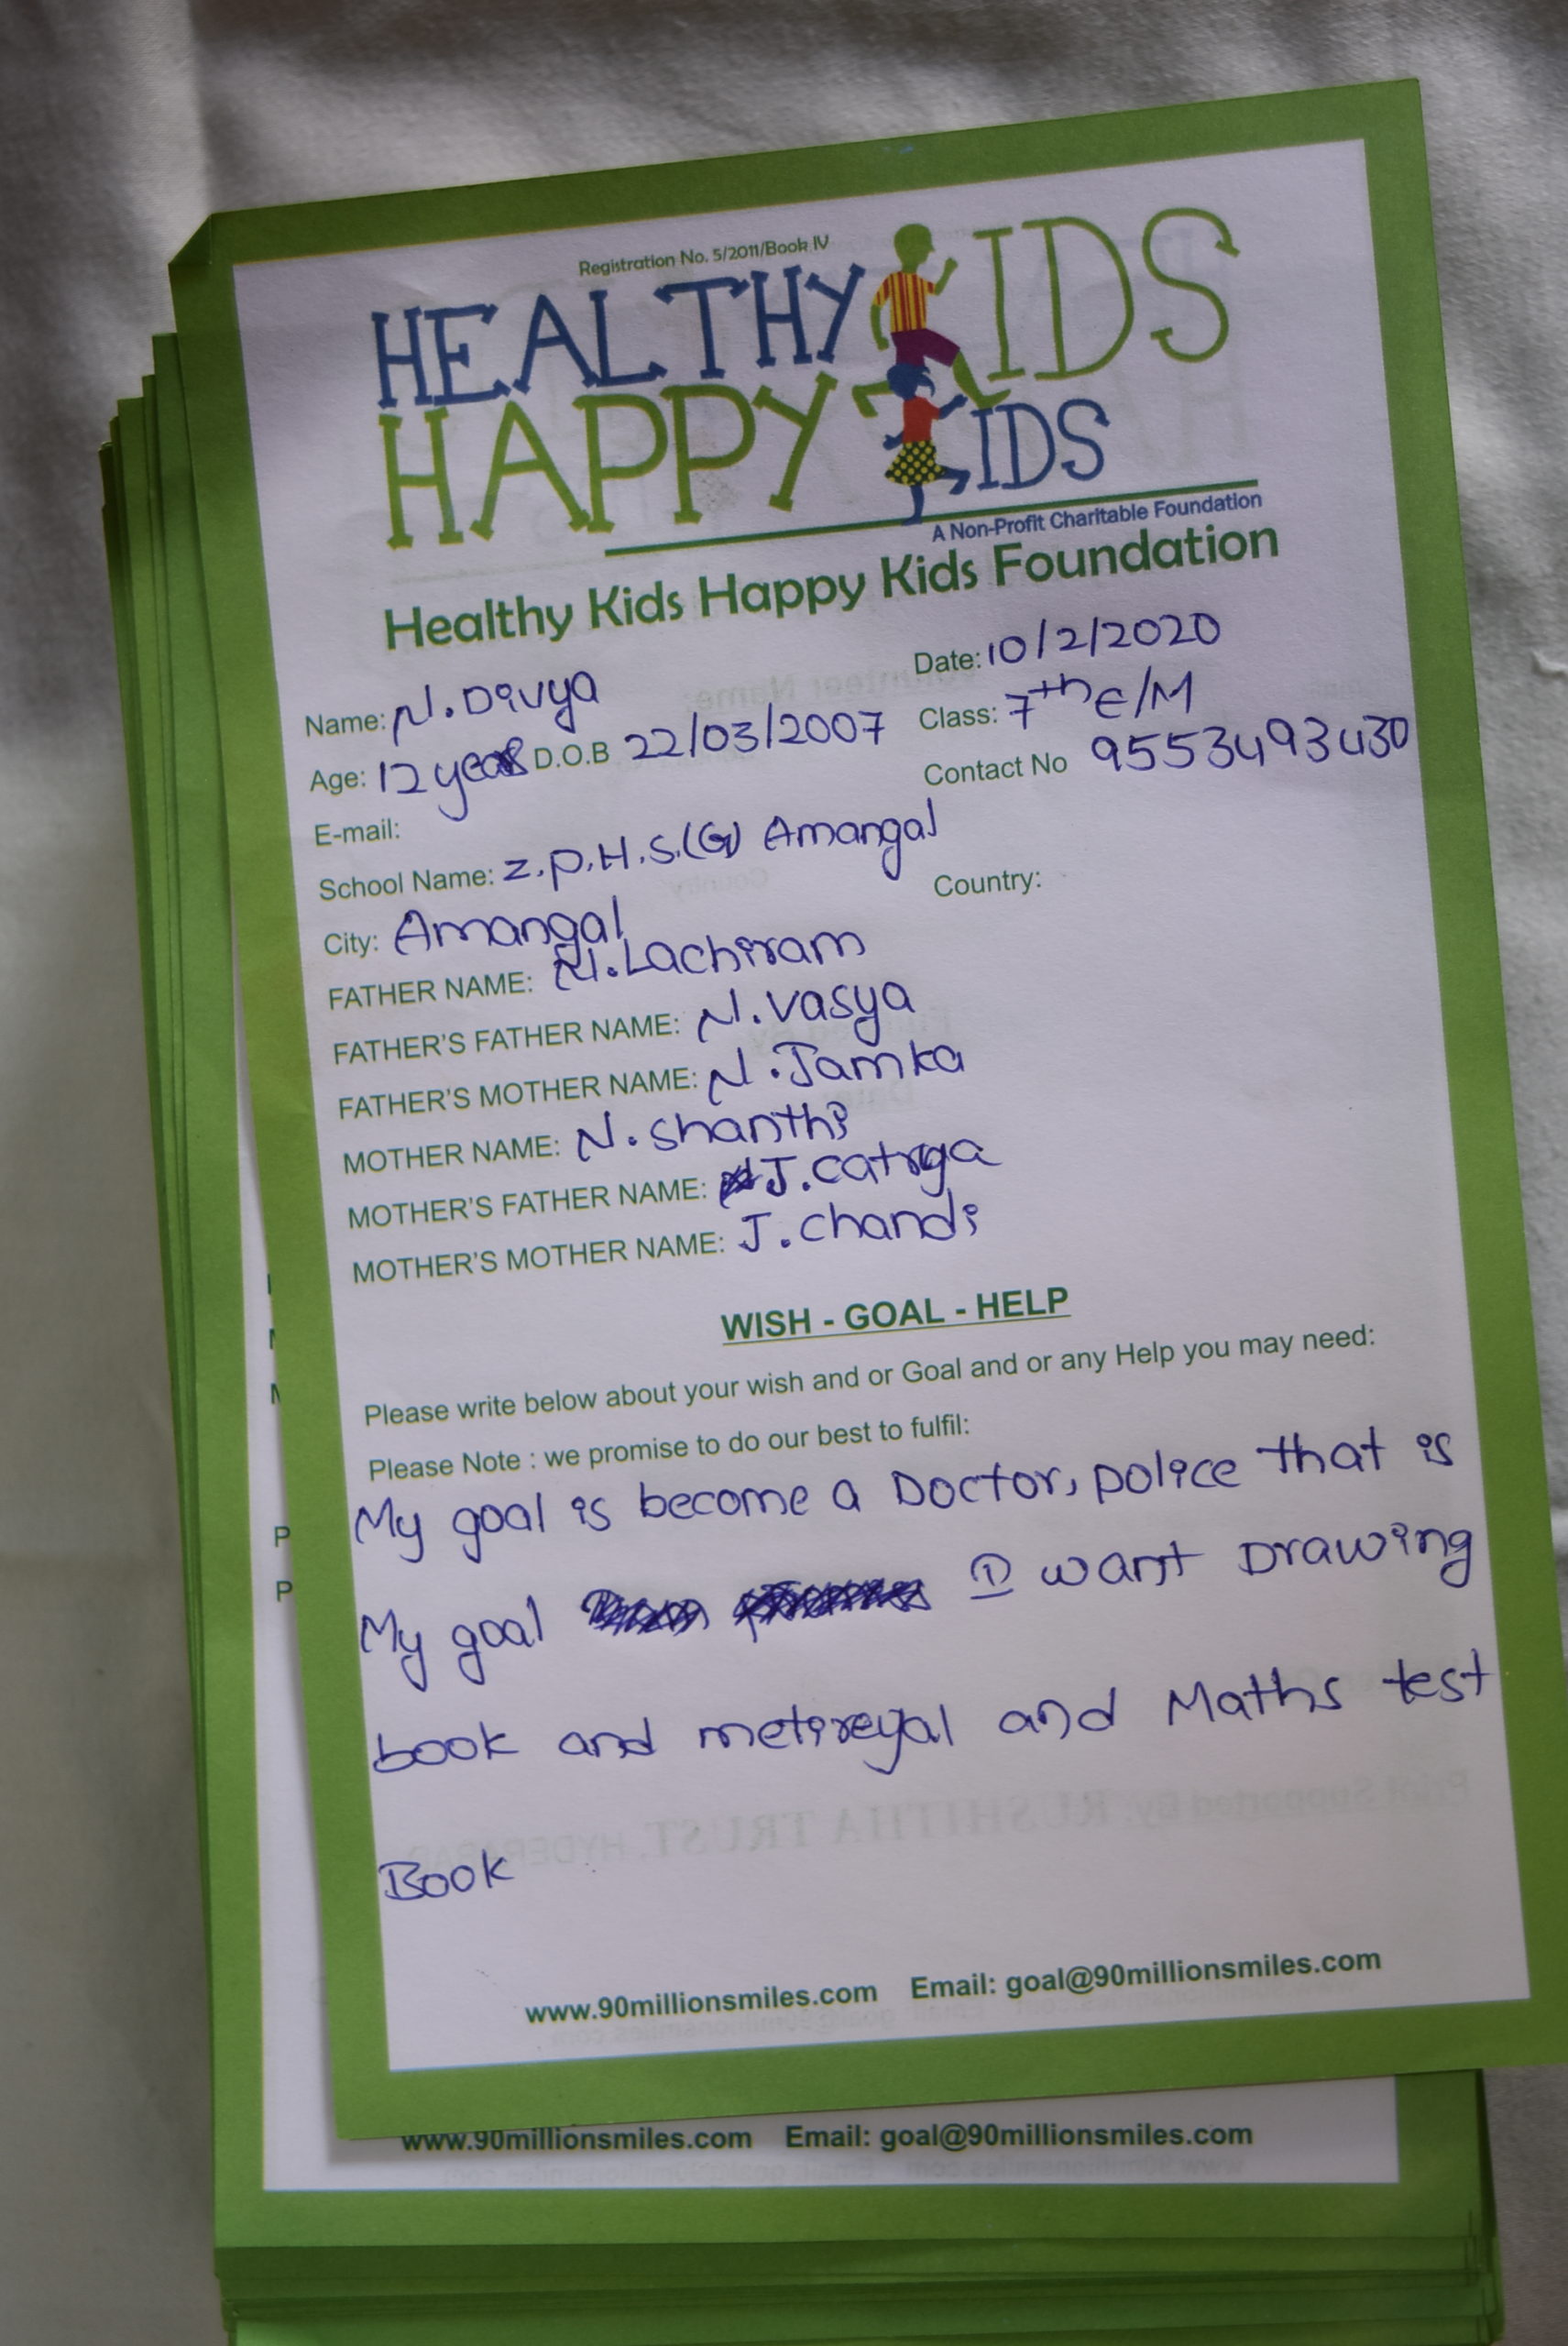 Registration No. 5/2011/Book IV
HEALTHY KIDS
HAPPY KIDS
A Non-Profit Charitable Foundation
Healthy Kids Happy Kids Foundation
Name: N. Divya Date: 10/2/2020
Age: 12 years D.O.B 22/03/2007 Class: 7th E/M
E-mail: Contact No 9553493430
School Name: Z.P.H.S.(G) Amangal
City: Amangal Country:
FATHER NAME: N. Lachiram
FATHER'S FATHER NAME: N. Vasya
FATHER'S MOTHER NAME: N. Jamka
MOTHER NAME: N. Shanthi
MOTHER'S FATHER NAME: J.
MOTHER'S MOTHER NAME: J. Chandi
WISH - GOAL - HELP
Please write below about your wish and or Goal and or any Help you may need:
Please Note : we promise to do our best to fulfil:
My goal is become a Doctor, police that is
My goal I want Drawing
book and metireyal and Maths test
Book
www.90millionsmiles.com Email: goal@90millionsmiles.com
www.90millionsmiles.com Email: goal@90millionsmiles.com